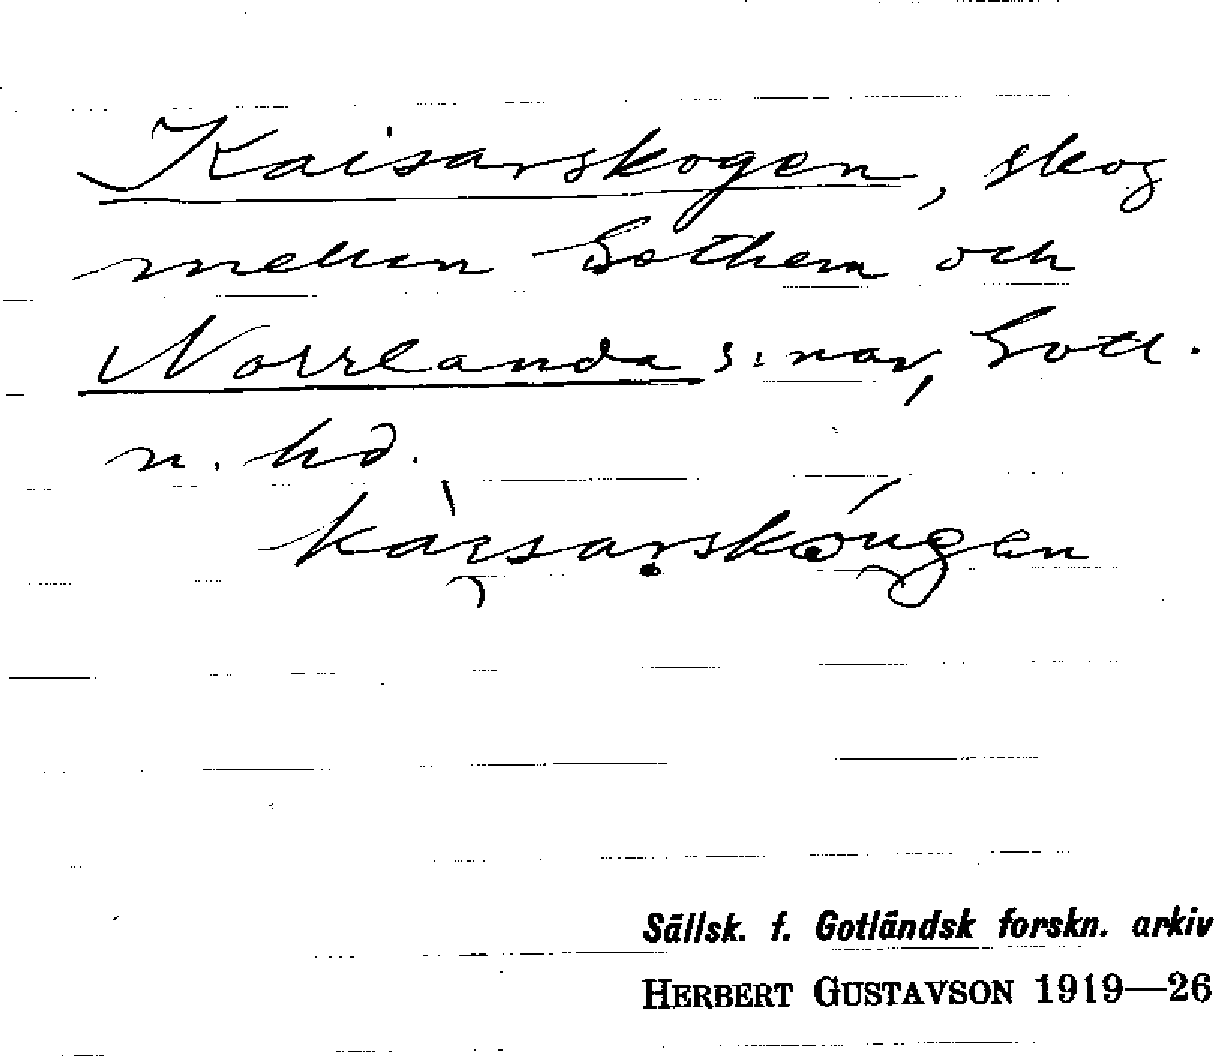 Kaisarskogen, skog
mellan Gothem och
Norrlanda s:nar, Gotl.
n. hd.
kàisarskóugen
Sällsk. f. Gotländsk forskn. arkiv
HERBERT GUSTAVSON 1919—26